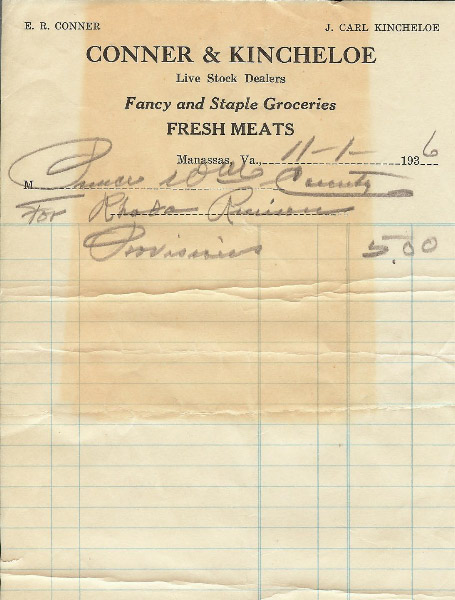 E. R. CONNER J. CARL KINCHELOE
CONNER & KINCHELOE
Live Stock Dealers
Fancy and Staple Groceries
FRESH MEATS
Manassas, Va., 11-1- 1936
M Prince County
For Rhoda
Provisions 5.00